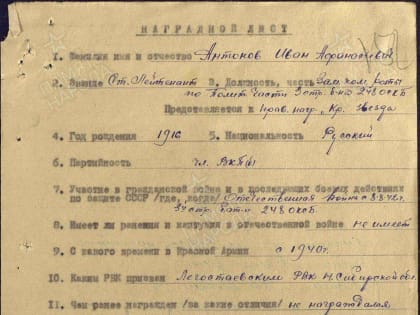 НАГРАДНОЙ ЛИСТ
1. Фамилия имя и отчество Антонов Иван Афанасьевич
2. Звание Ст. Лейтенант 3. Должность, часть Зам. ком. роты
по полит части 3 стр. б-на 248 оскб
Представляется к прав. наг. Кр. Звезда
4. Год рождения 1916 5. Национальность Русский
6. Партийность чл. ВКПб
7. Участие в гражданской войне и в последующих боевых действиях
по защите СССР /где, когда/ Отечественная война с
стр. бат. 248 оскб.
8. Имеет ли ранения и контузии в отечественной войне не имеет
9. С какого времени в Красной Армии с 1940 г.
10. Каким РВК призван Легостаевским РВК Н. Сибирской обл.
11. Чем ранее награжден /за какие отличия/ не награждался